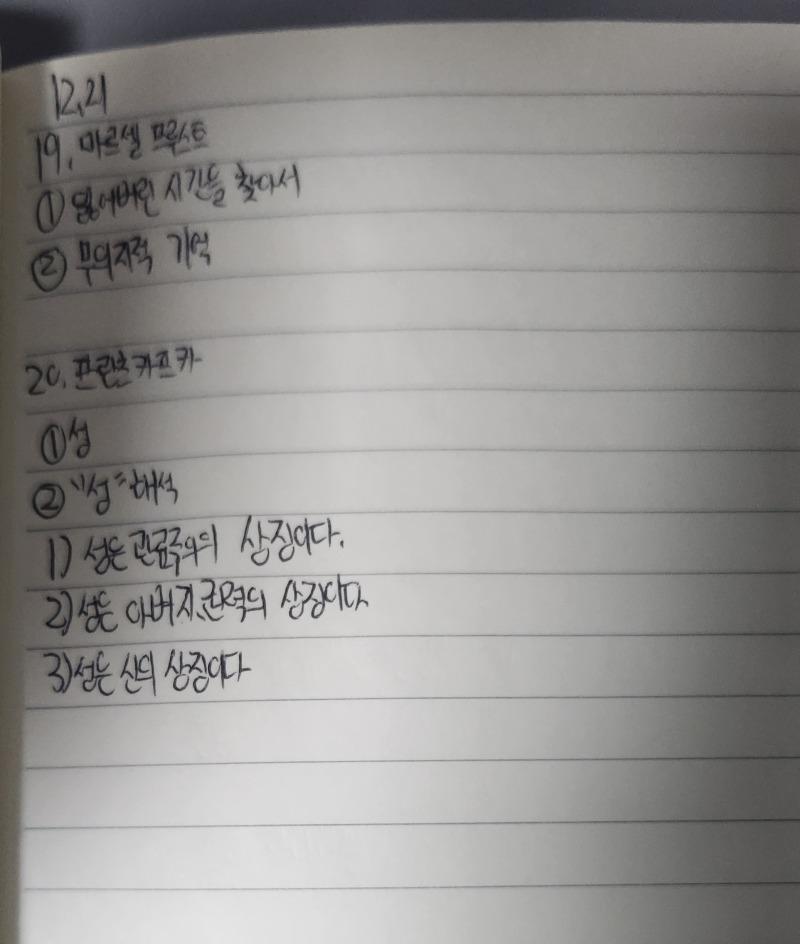 12.21
19. 마르셀 프루스트
① 잃어버린 시간을 찾아서
② 무의지적 기억
20. 프란츠 카프카
① 성
② "성" 해석
1) 성은 관료주의의 상징이다.
2) 성은 아버지, 권력의 상징이다.
3) 성은 신의 상징이다